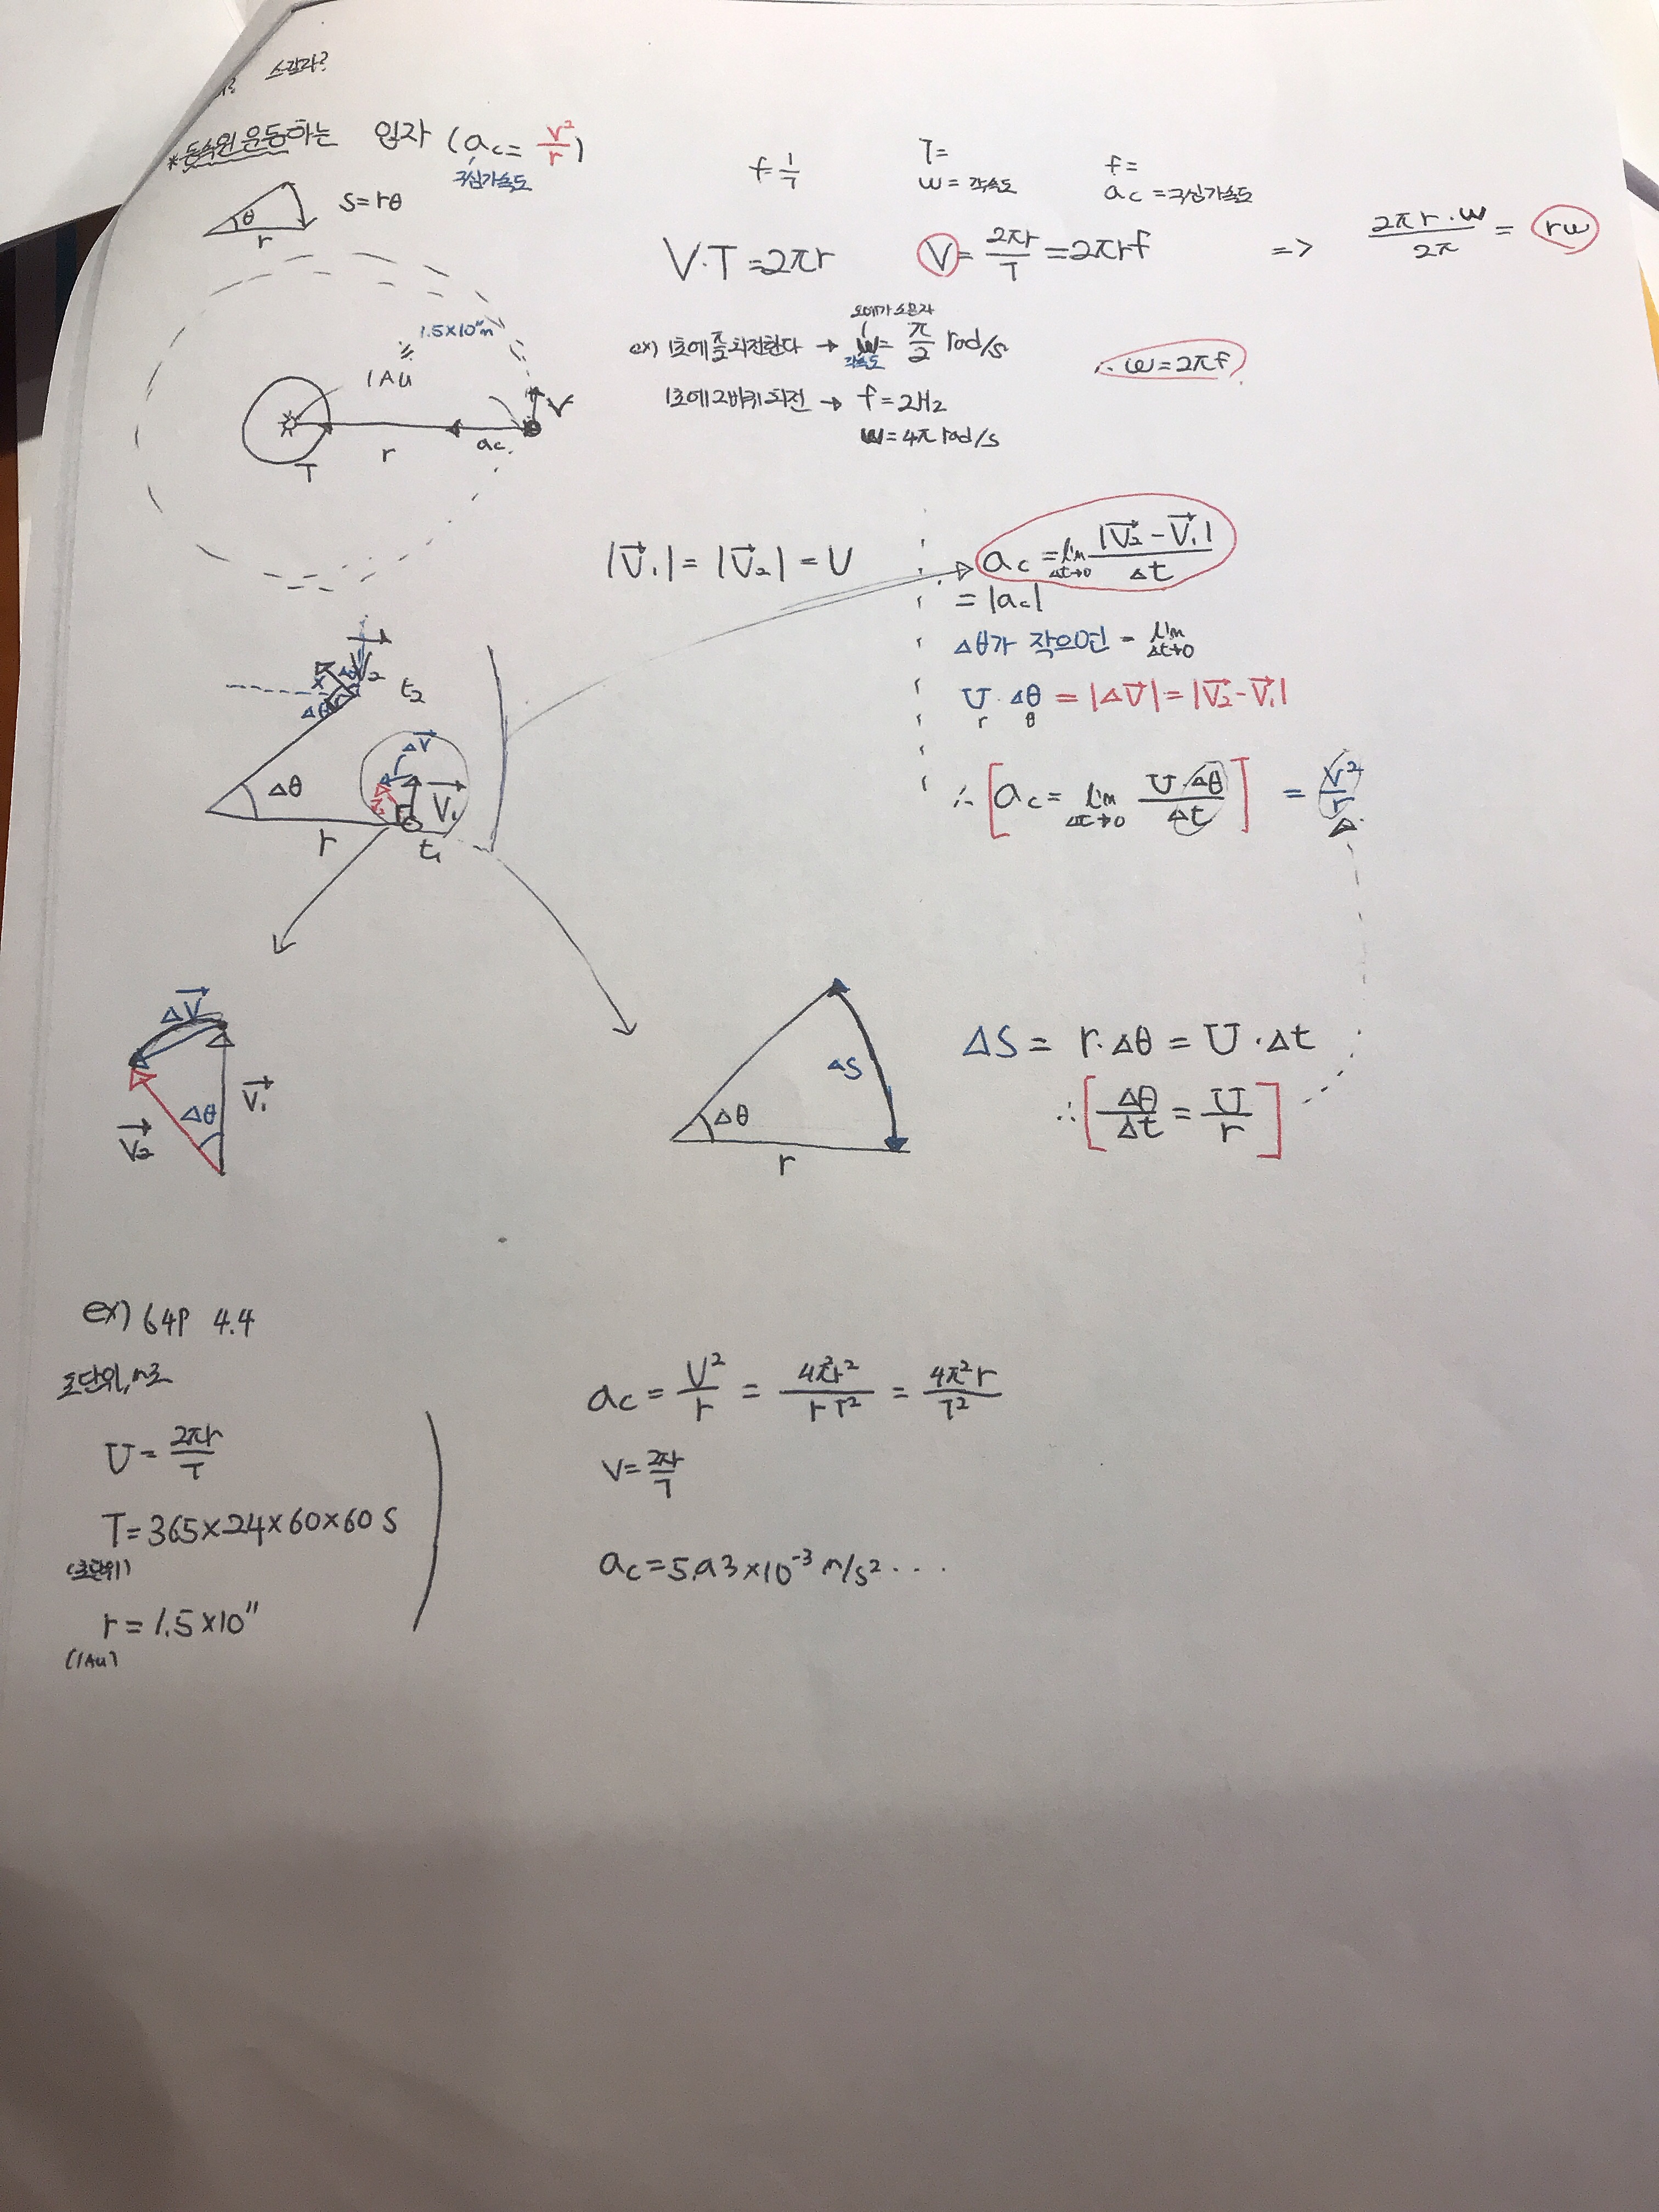 스칼라?
*등속원운동하는 입자 (ac = v²/r)
구심가속도
f = 1/T
T =
w = 각속도
f =
ac = 구심가속도
S = rθ
θ
r
V·T = 2πr
V = 2πr/T = 2πrf
=> 2πr·w/2π = rw
1.5×10¹¹m
1Au
T
r
ac
V
오메가 소문자
ex) 1초에 π/2 회전한다 → w = π/2 rad/s
각속도
∴ w = 2πf
1초에 2바퀴 회전 → f = 2Hz
w = 4π rad/s
|V₁| = |V₂| = V
ac = lim Δt→0 |V₂ - V₁| / Δt
= |ac|
Δθ가 작으면 - lim Δt→0
V · Δθ = |ΔV| = |V₂ - V₁|
r θ
∴ [ac = lim Δt→0 V·Δθ/Δt] = v²/r
V₂
t₂
Δθ
Δθ
r
ΔV
V₁
t₁
ΔV
V₁
Δθ
V₂
ΔS
Δθ
r
ΔS = r·Δθ = V·Δt
∴ [Δθ/Δt = V/r]
ex) 64p 4.4
초단위, m로
V = 2πr/T
T = 365×24×60×60 S
(초단위)
r = 1.5×10¹¹
(1Au)
ac = V²/r = 4π²r²/rT² = 4π²r/T²
V = 2πr/T
ac = 5.93×10⁻³ m/s² ...